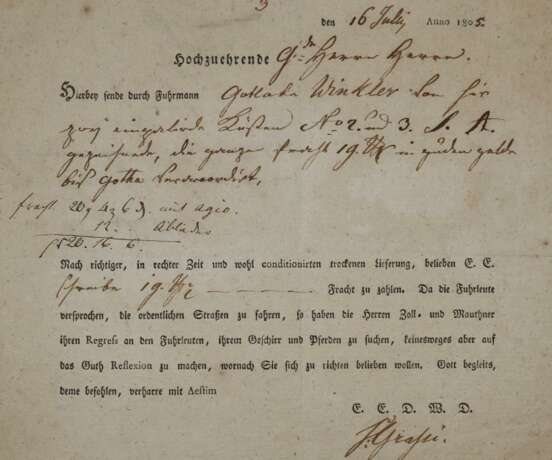 den 16 Julij Anno 1805.
Hochzuehrende Herrn Herrn.
Hierbey sende durch Fuhrmann Winkler von hier
zwey Kisten No 2. und 3. S. A.
gezeichnete, die ganze Fracht 19. in guden gelde
bis Gotha
fracht 20 4 6 mit Agio.
12. Ablader
20. 16. 6.
Nach richtiger, in rechter Zeit und wohl conditionirten trockenen Lieferung, belieben E. E.
schreibe 19. Fracht zu zahlen. Da die Fuhrleute
versprochen, die ordentlichen Straßen zu fahren, so haben die Herren Zoll- und Mauthner
ihren Regreß an den Fuhrleuten, ihrem Geschirr und Pferden zu suchen, keinesweges aber auf
das Guth Reflexion zu machen, wornach Sie sich zu richten belieben wollen. Gott begleits,
deme befohlen, verharre mit Aestim
E. E. D. W. D.